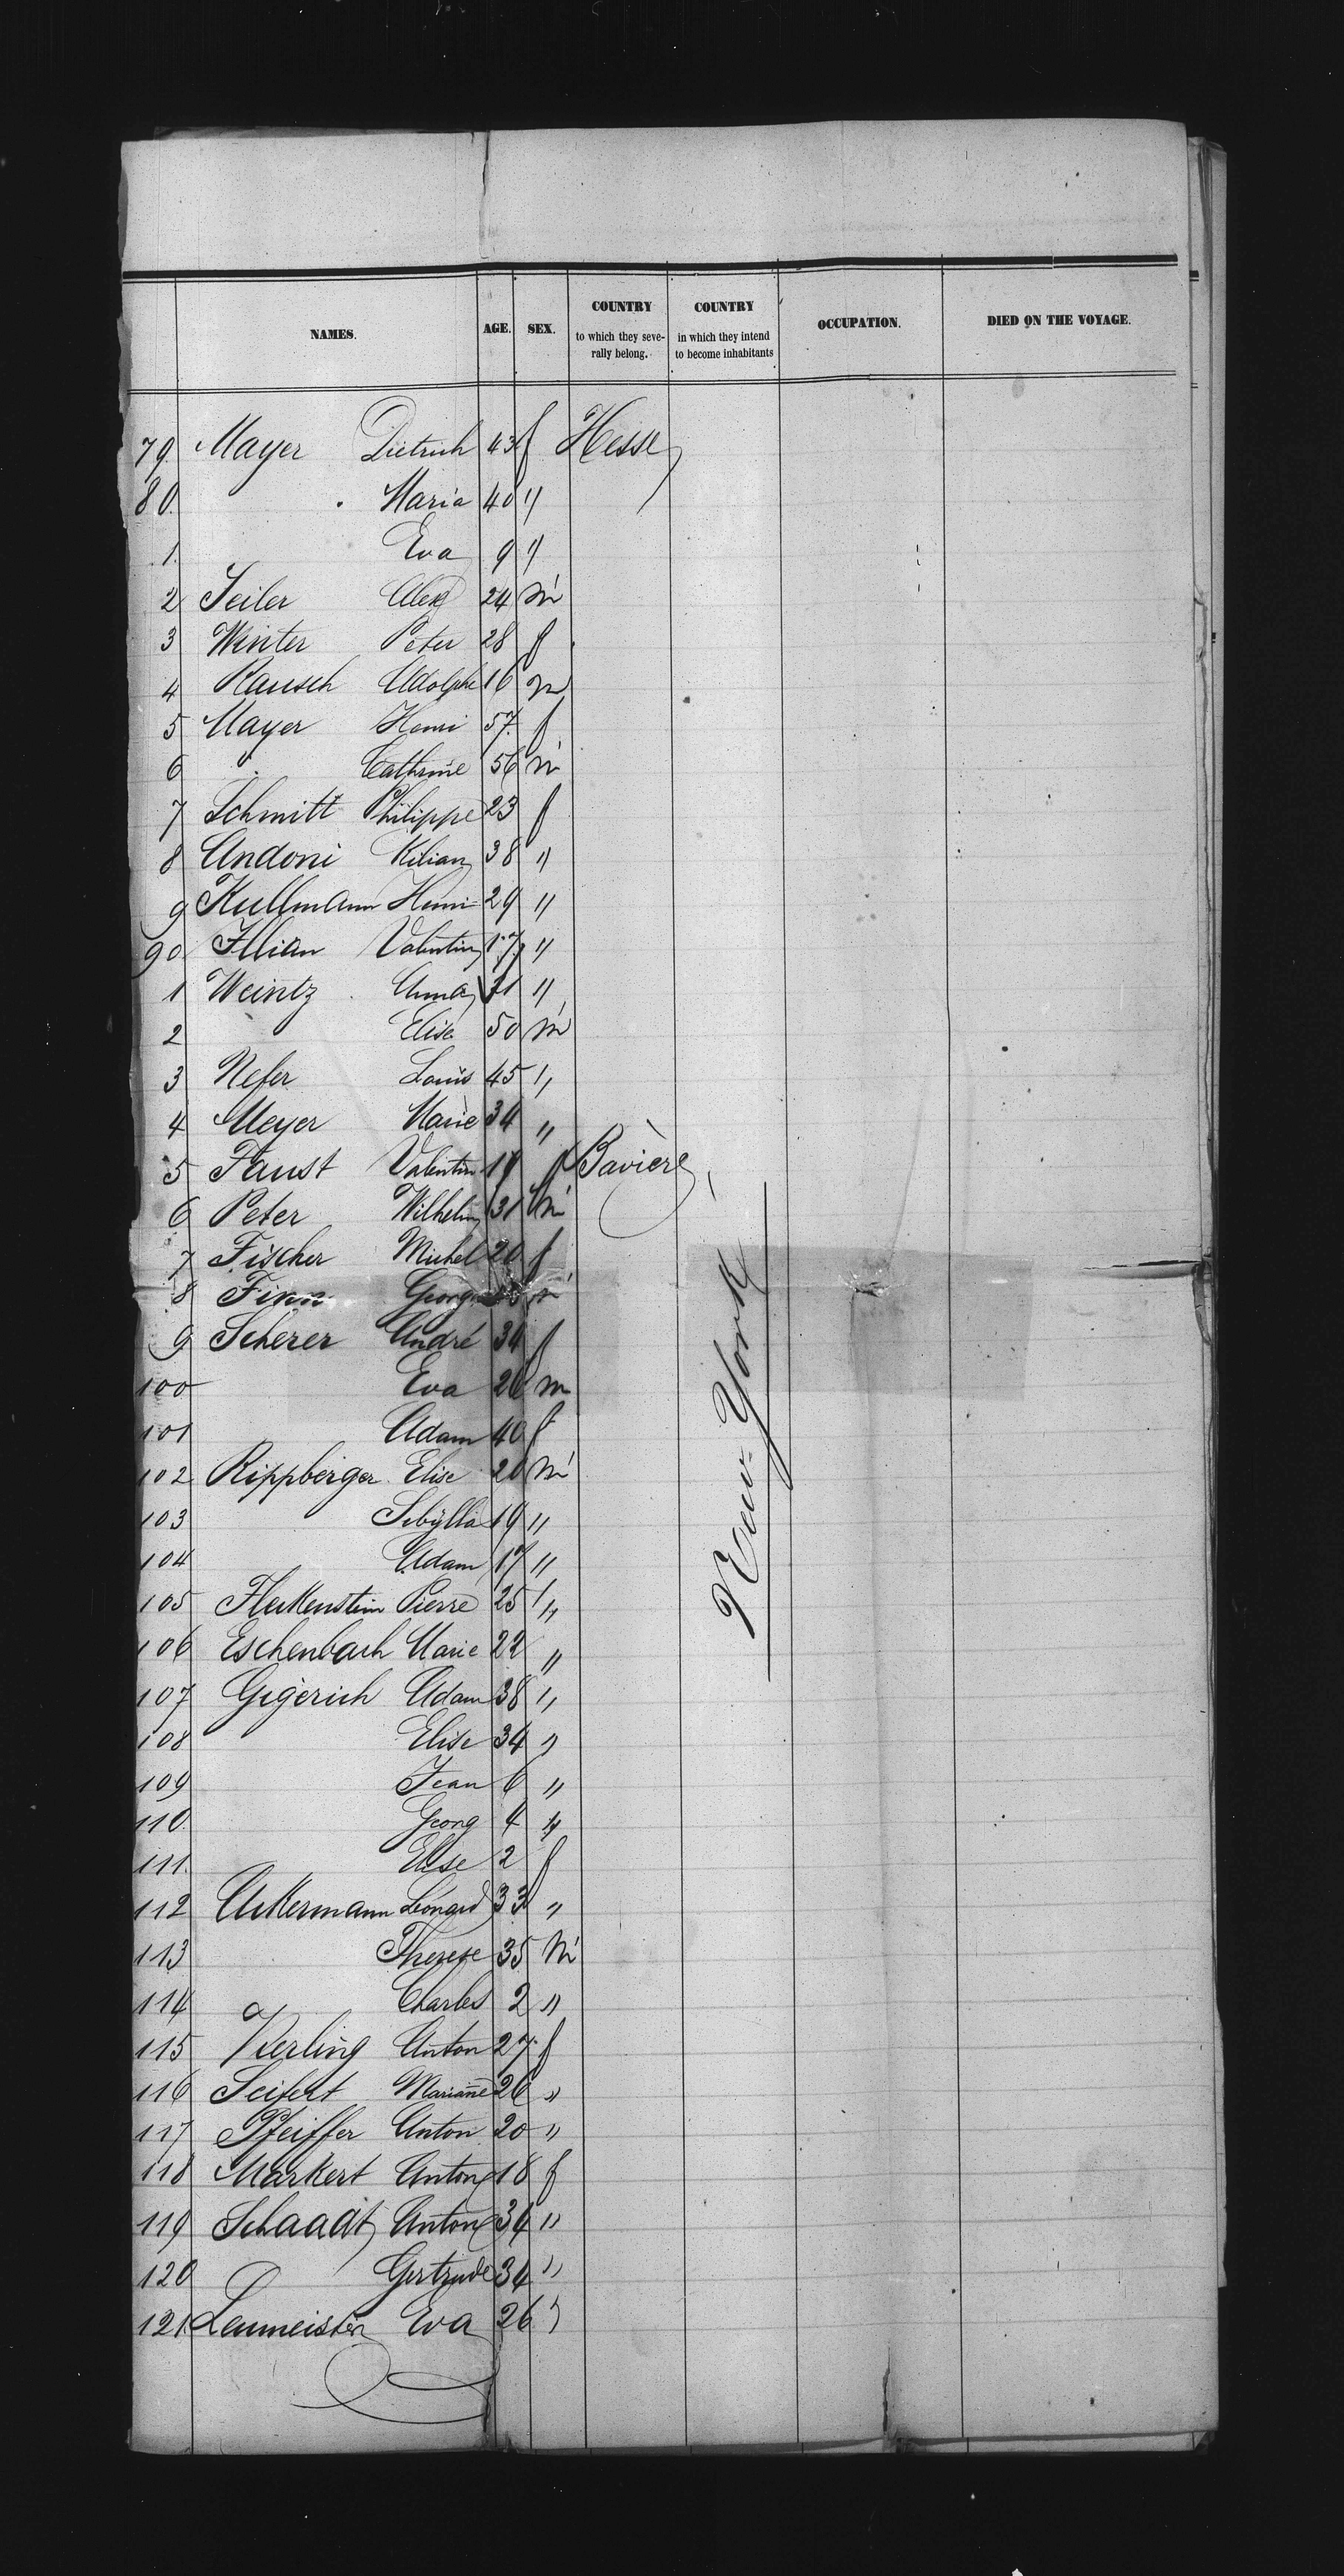 NAMES. AGE. SEX. COUNTRY to which they seve-rally belong. COUNTRY in which they intend to become inhabitants OCCUPATION. DIED ON THE VOYAGE.
79. Mayer Dietrich 43 f Hesse
80. Maria 40 "
1. Eva 9 "
2 Seiler Alex 24 m
3 Winter Peter 28 f
4 Rausch Adolphe 16 m
5 Mayer Henri 57 f
6 " Cathrine 56 m
7 Schmitt Philippe 23 f
8 Andoni Kilian 38 "
9 Kullmann Henri 29 "
90 Illian Valentin 17 "
1 Weintz Anna 31 "
2 Elise 50 m
3 Nefer Louis 45 "
4 Meyer Marie 34 "
5 Faust Valentin 19 f Bavière
6 Peter Wilhelm 31 m
7 Fischer Michel 20 f
8 Finn Georg m
9 Scherer André 34 f
100 Eva 26 m
101 Adam 40 f
102 Rippberger Elise 20 m
103 Sibylla 19 "
104 Adam 17 "
105 Flekenstein Pierre 25 "
106 Eschenbach Marie 22 "
107 Gigerich Adam 38 "
108 Elise 34 "
109 Jean 6 "
110. Georg 4 "
111. Elise 2 f
112 Ackermann Léonard 33 "
113 Therese 35 m
114 Charles 2 "
115 Kerling Anton 27 f
116 Seifert Marianne 26 "
117 Pfeiffer Anton 20 "
118 Markert Anton 18 f
119 Schaadt Anton 34 "
120 Gertrude 34 "
121. Leumeister Eva 26 "
New-York